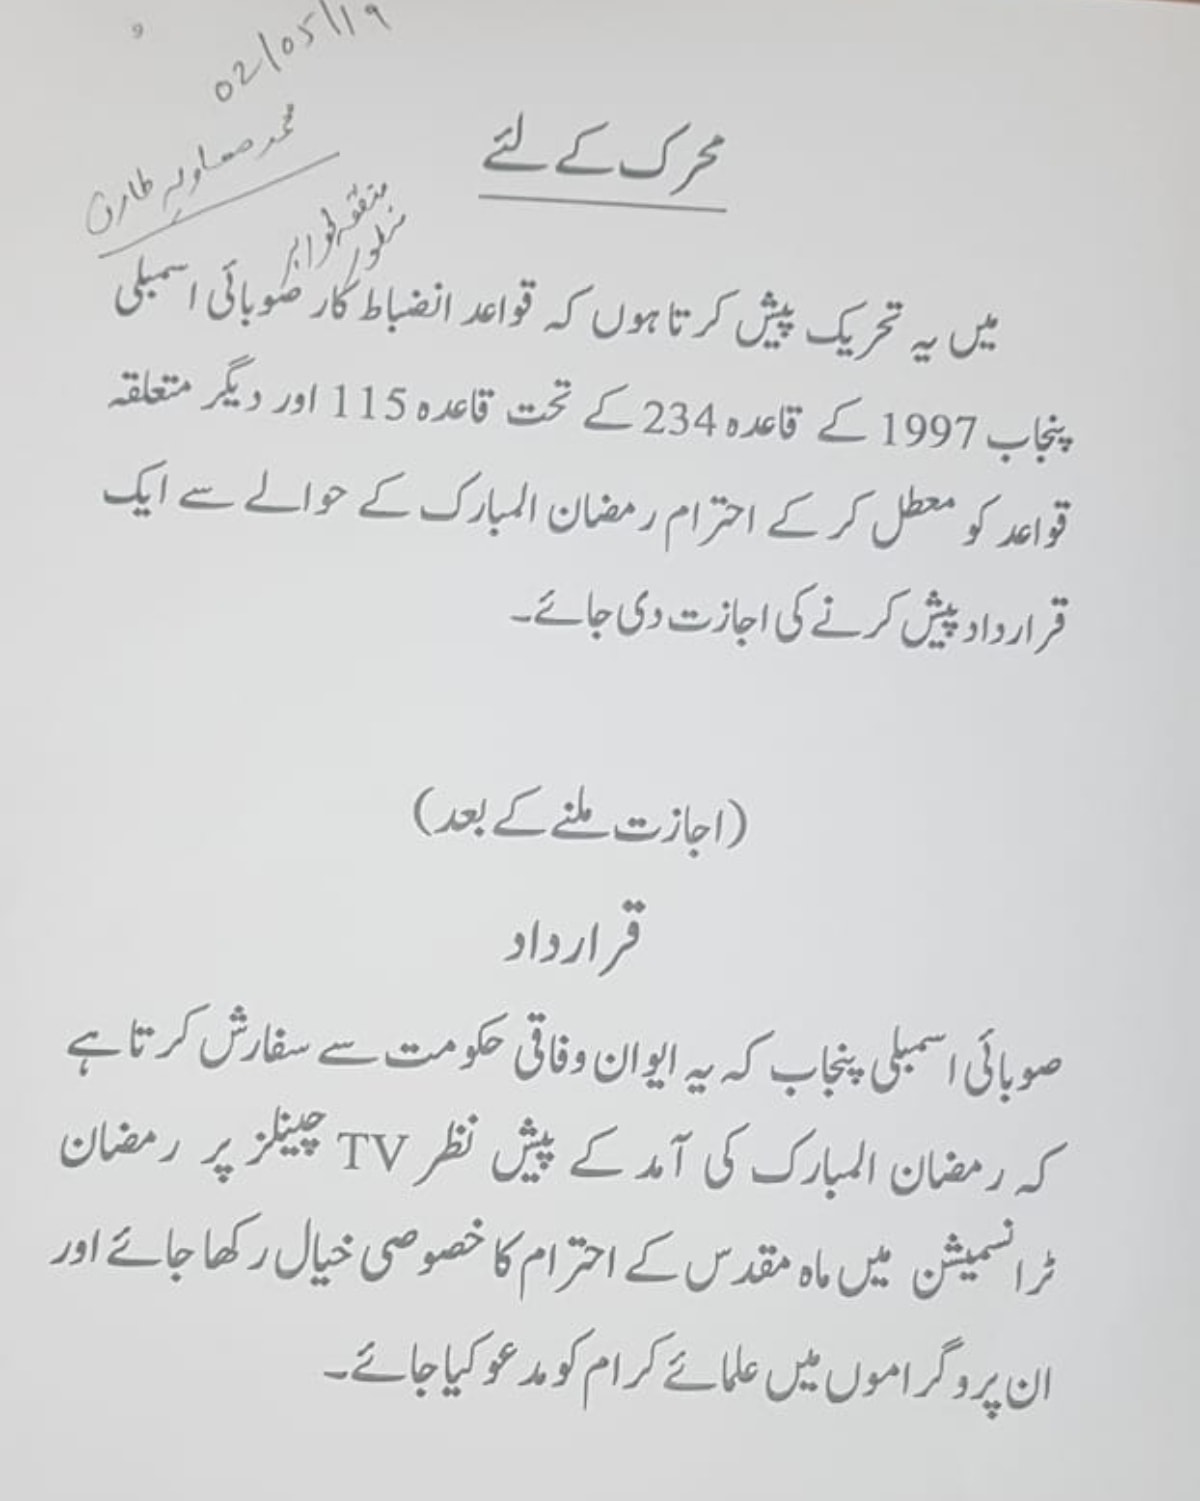 02/05/19
محمد معاویہ طارق
محرک کے لئے
متفقہ طور پر
منظور
میں یہ تحریک پیش کرتا ہوں کہ قواعد انضباط کار صوبائی اسمبلی
پنجاب 1997 کے قاعدہ 234 کے تحت قاعدہ 115 اور دیگر متعلقہ
قواعد کو معطل کر کے احترام رمضان المبارک کے حوالے سے ایک
قرارداد پیش کرنے کی اجازت دی جائے۔
(اجازت ملنے کے بعد)
قرارداد
صوبائی اسمبلی پنجاب کہ یہ ایوان وفاقی حکومت سے سفارش کرتا ہے
کہ رمضان المبارک کی آمد کے پیش نظر TV چینلز پر رمضان
ٹرانسمیشن میں ماہ مقدس کے احترام کا خصوصی خیال رکھا جائے اور
ان پروگراموں میں علمائے کرام کو مدعو کیا جائے۔